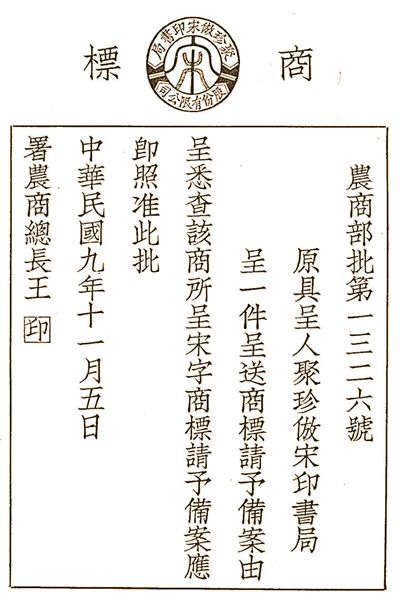 商標
聚珍倣宋印書局
股份有限公司
宋
農商部批第一三二六號
原具呈人聚珍倣宋印書局
呈一件呈送商標請予備案由
呈悉查該商所呈宋字商標請予備案應
即照准此批
中華民國九年十一月五日
署農商總長王 印